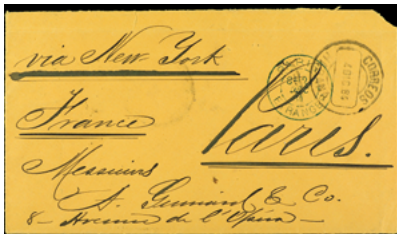 via New York
France
Paris.
Messieurs
A. & Co.
8 - Avenue de l'Opéra -
CORREOS